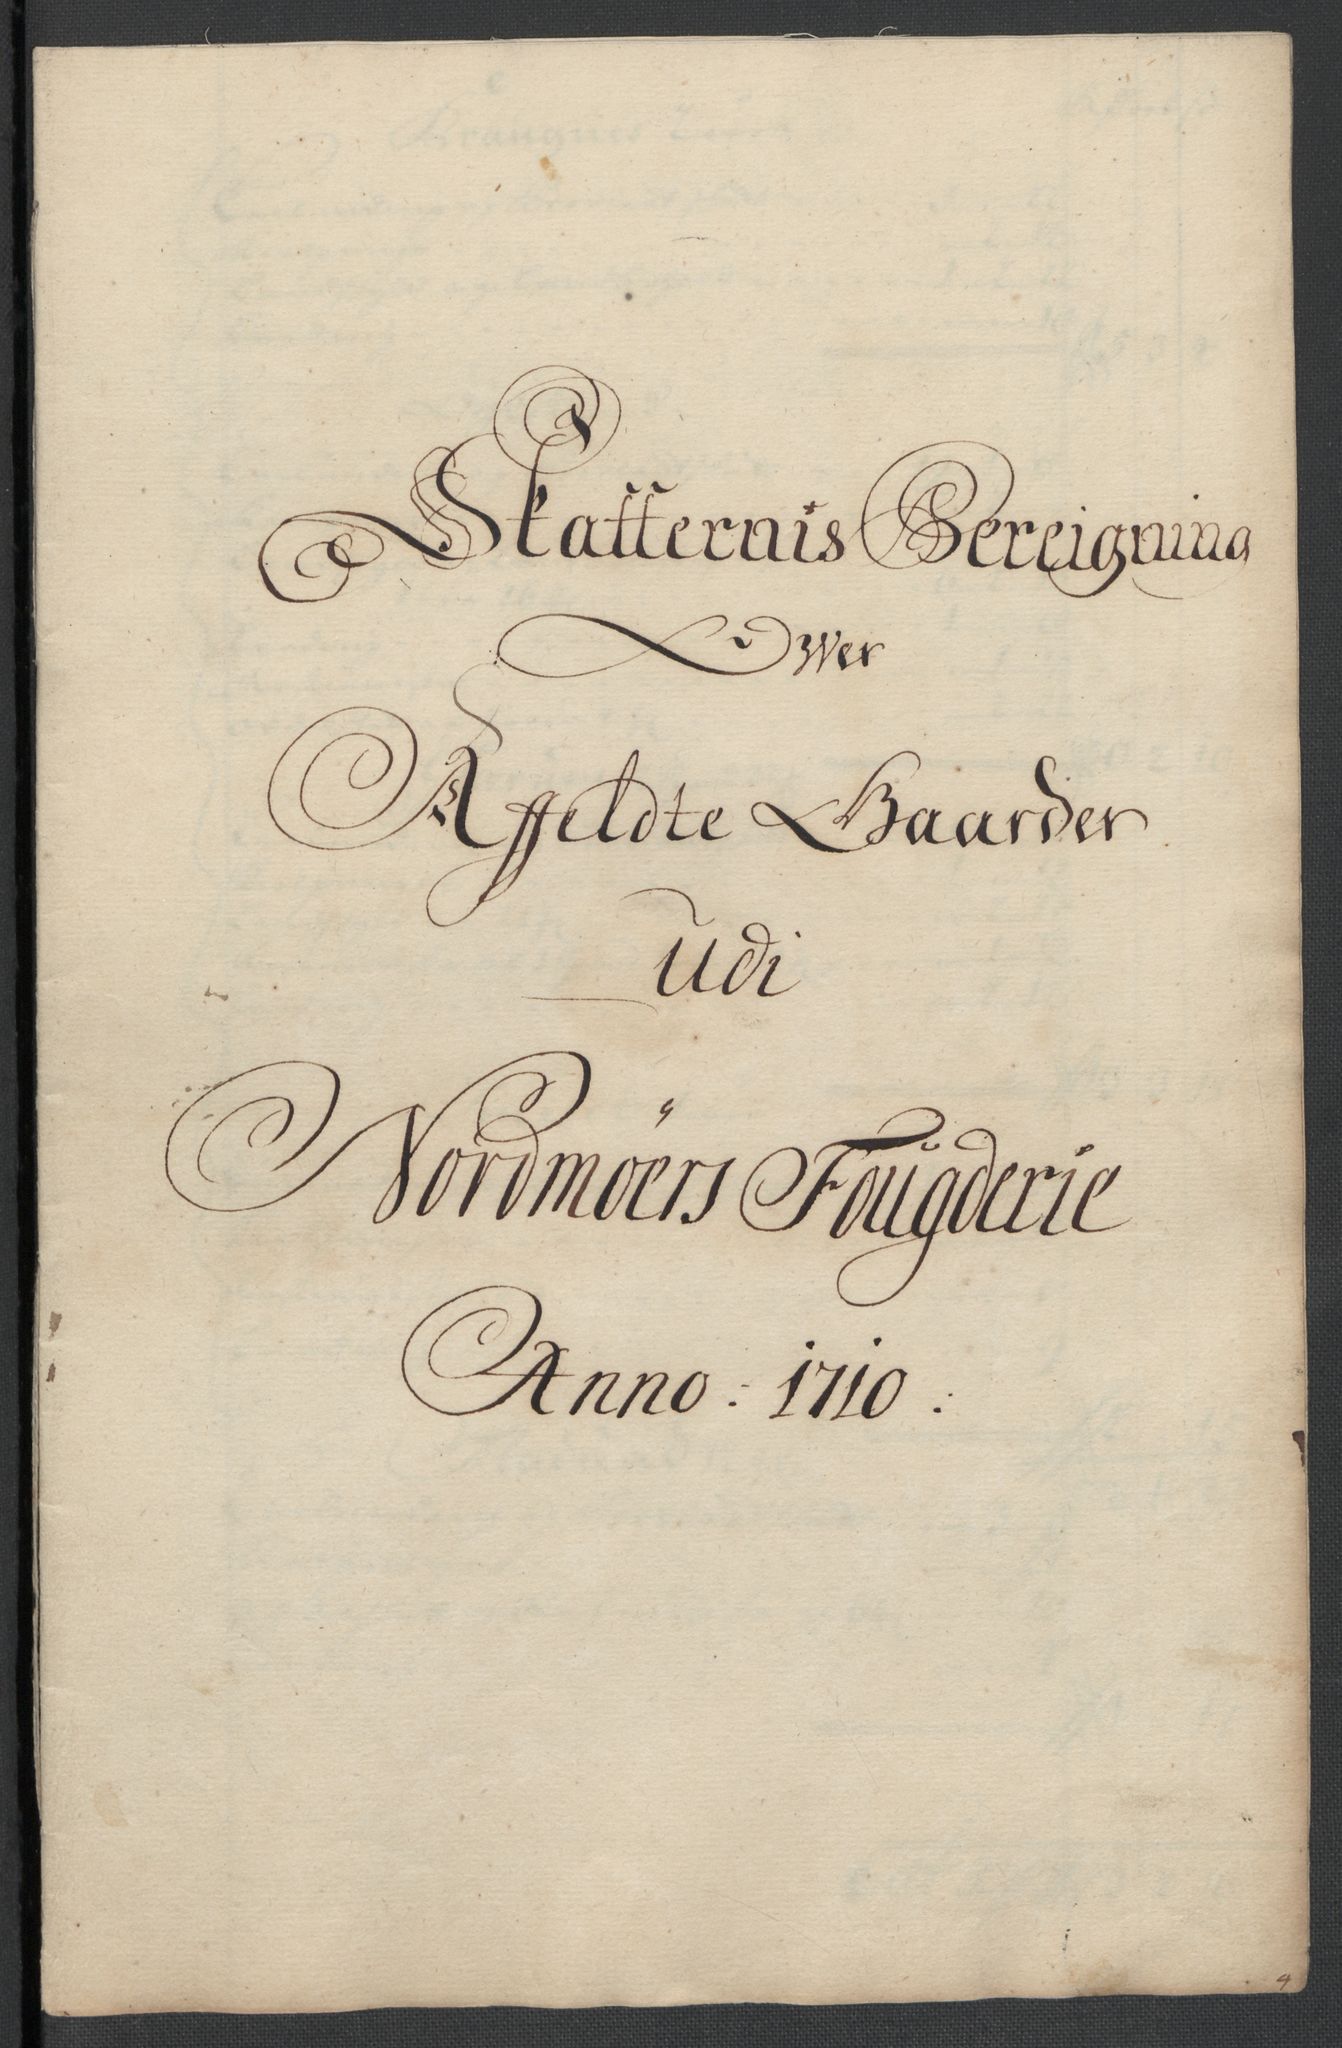 Skatternis Bereigning
Ower
Affeldte Gaarder
udi
Nordmöers Fougderie
Anno : 1710 :
4